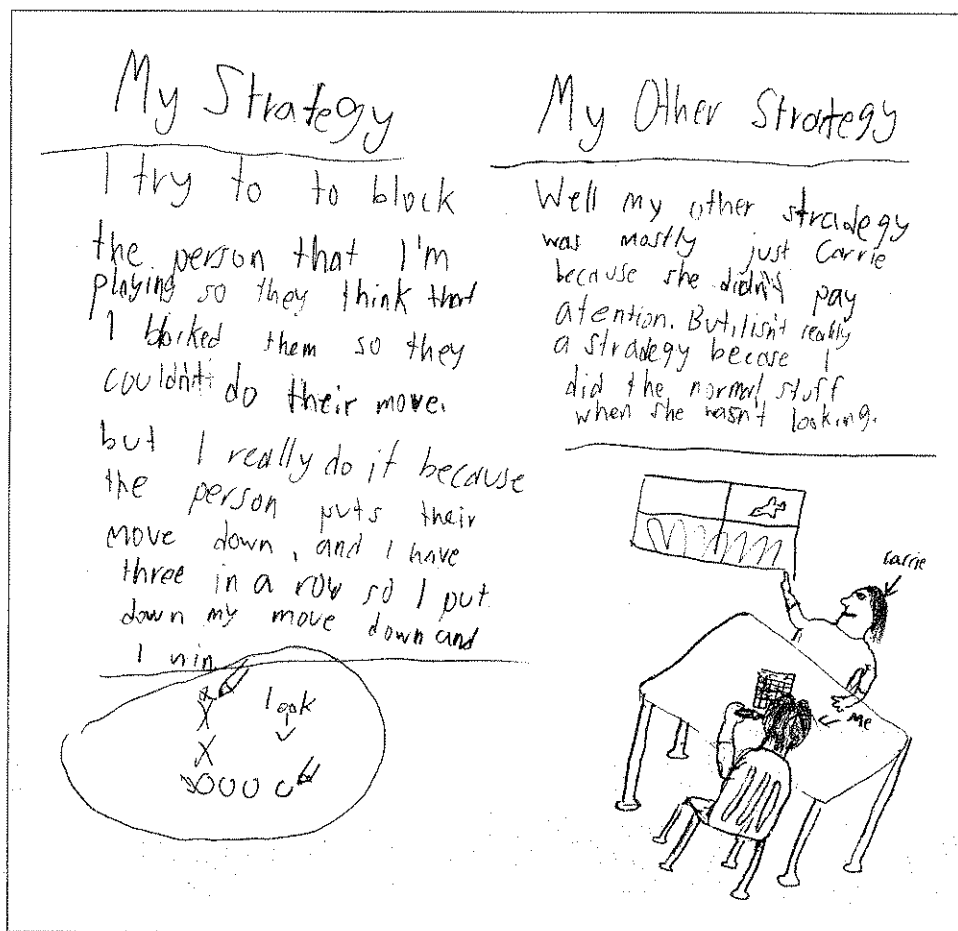 My Strategy
I try to to block
the person that I'm
playing so they think that
I blocked them so they
couldn't do their move.
but I really do it because
the person puts their
move down, and I have
three in a row so I put
down my move down and
I win
look
X
X
X
OOO O
My Other Strategy
Well my other stradegy
was mostly just Carrie
because she didn't pay
atention. But, I isn't really
a stradegy becase I
did the normal stuff
when she wasn't looking.
carrie
me